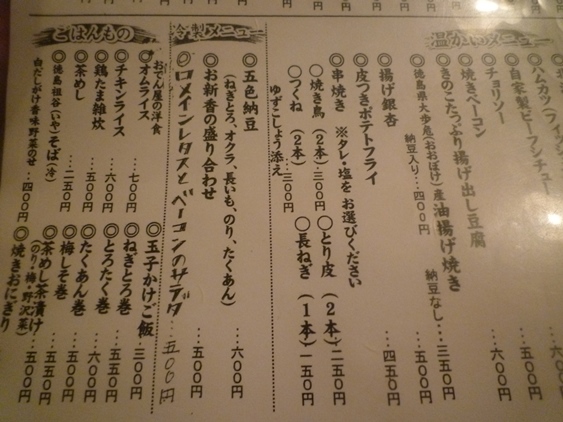 温かいメニュー
自家製ビーフシチュー
チョリソー
焼きベーコン
きのこたっぷり揚げ出し豆腐
徳島県大歩危(おおぼけ)産油揚げ焼き
納豆入り…四〇〇円 納豆なし…三五〇円
揚げ銀杏 …五〇〇円
皮つきポテトフライ …四五〇円
串焼き ※タレ・塩をお選びください
〇焼き鳥(2本)…三〇〇円 〇とり皮(2本)…二五〇円
〇つくね(2本)…三〇〇円 〇長ねぎ(1本)一五〇円
ゆずこしょう添え
冷製メニュー
五色納豆 …六〇〇円
(ねぎとろ、オクラ、長いも、のり、たくあん)
お新香の盛り合わせ …五〇〇円
ロメインレタスとベーコンのサラダ …五〇〇円
ごはんもの
おでん屋の洋食
オムライス …七〇〇円
チキンライス …六〇〇円
鶏たま雑炊 …五〇〇円
茶めし …二五〇円
徳島・祖谷(いや)そば(冷)
白だしがけ香味野菜のせ …四〇〇円
玉子かけご飯 …三〇〇円
ねぎとろ巻 …五五〇円
とろたく巻 …六〇〇円
たくあん巻
梅しそ巻
茶めし茶漬け …五五〇円
(のり・梅・野沢菜)
焼きおにぎり